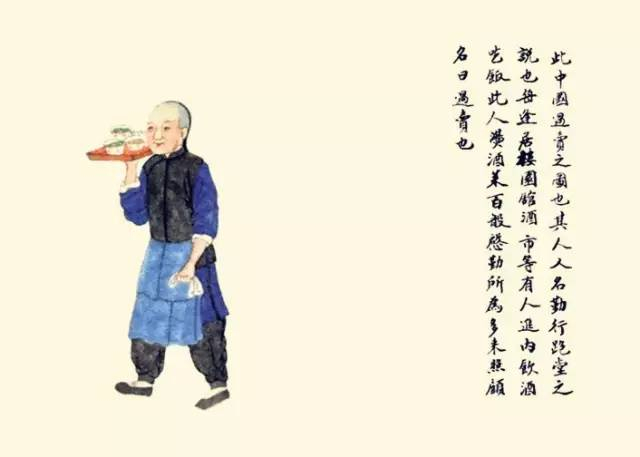 此中國過賣之圖也其人人名勤行跑堂之
說也每逢居樓園館酒市等有人進內飲酒
吃飯此人燙酒菜百般慇勤所為多來照顧
名曰過賣也